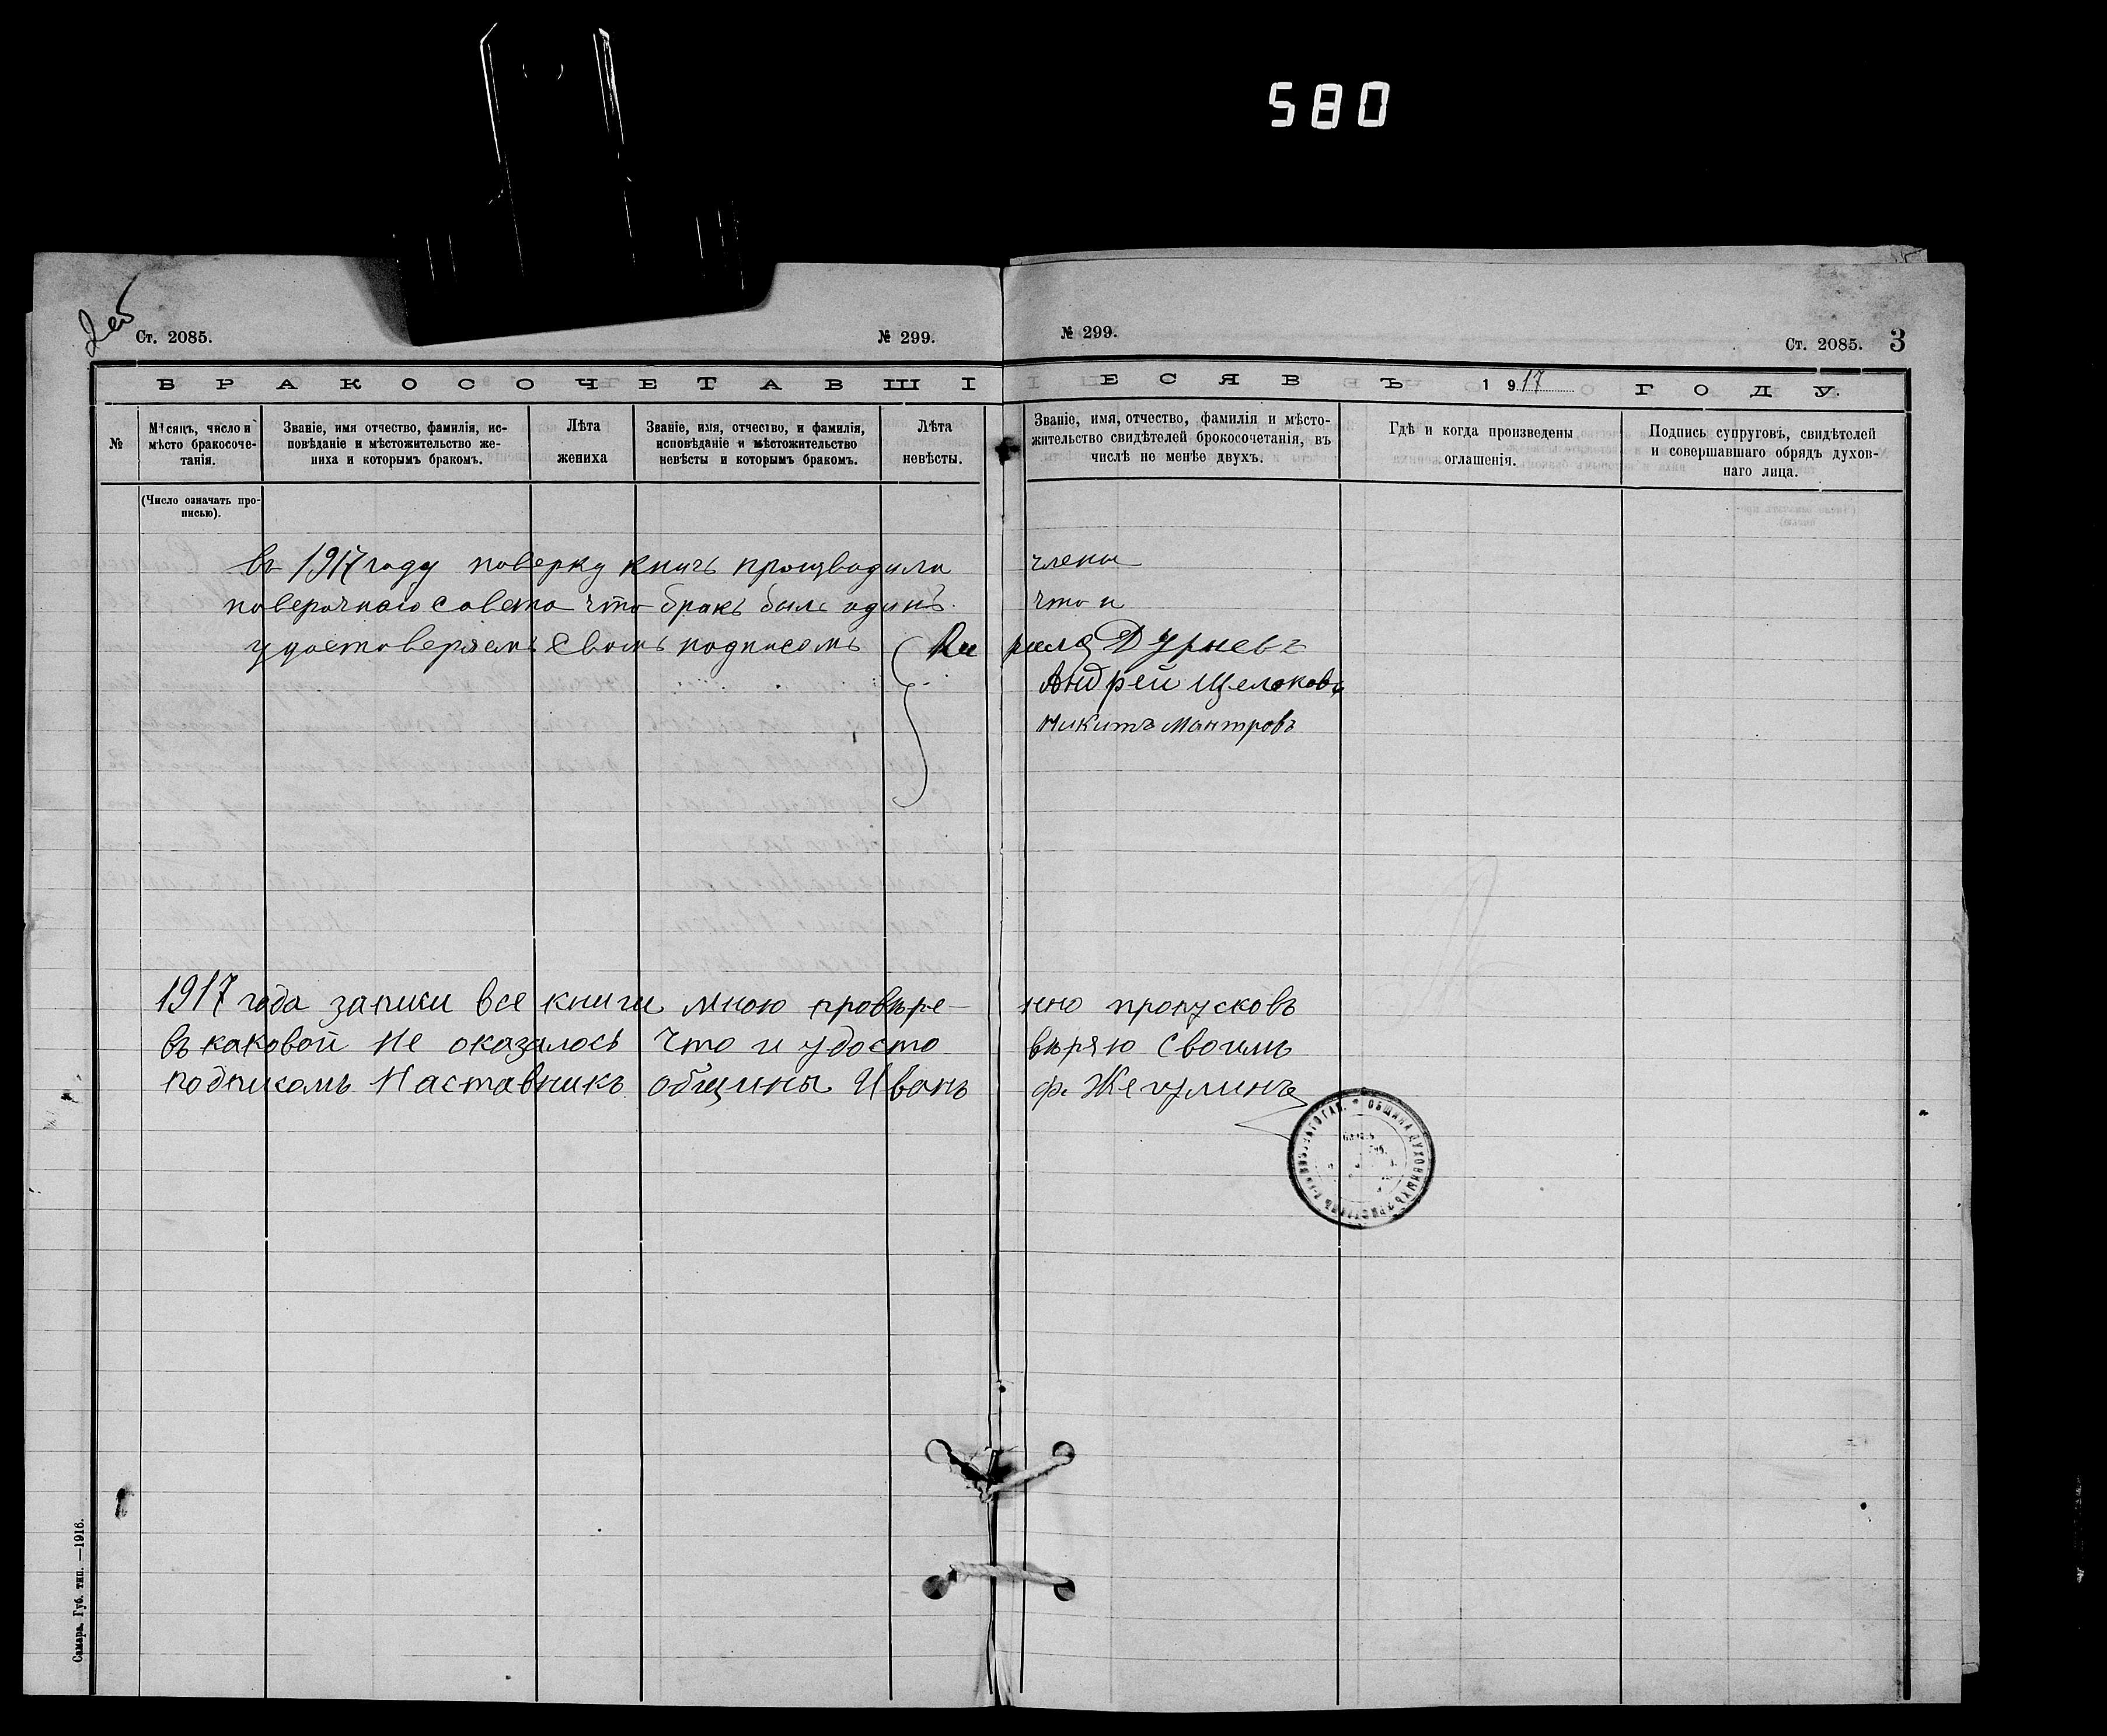 580
2об
Ст. 2085.
№ 299.
№ 299.
Ст. 2085. 3
БРАКОСОЧЕТАВШІ
ІЕСЯ ВЪ 1917 ГОДУ.
№
Мѣсяцъ, число и
мѣсто бракосоче-
танія.
(Число означать про-
писью).
Званіе, имя отчество, фамилія, ис-
повѣданіе и мѣстожительство же-
ниха и которымъ бракомъ.
Лѣта
жениха
Званіе, имя, отчество, и фамилія,
исповѣданіе и мѣстожительство
невѣсты и которымъ бракомъ.
Лѣта
невѣсты.
Званіе, имя, отчество, фамилія и мѣсто-
жительство свидѣтелей брокосочетанія, въ
числѣ не менѣе двухъ.
Гдѣ и когда произведены
оглашенія.
Подпись супруговъ, свидѣтелей
и совершавшаго обрядъ духов-
наго лица.
въ 1917 году поверку книгъ производили члены
поверочнаго совета что бракъ былъ одинъ. что и
удостоверяемъ своимъ подписомъ Ки рила Дурневъ
Андрей Щелоковъ
Никитъ Мантровъ
1917 года записи все книги мною провѣре- нно пропусковъ
въ каковой не оказалось что и удосто вѣряю своимъ
подписомъ Наставникъ общины Иванъ ф. Жегулинъ
ОБЩИНА ДУХОВНЫХЪ ХРИСТІАНЪ
Самара, Губ. тип. —1916.